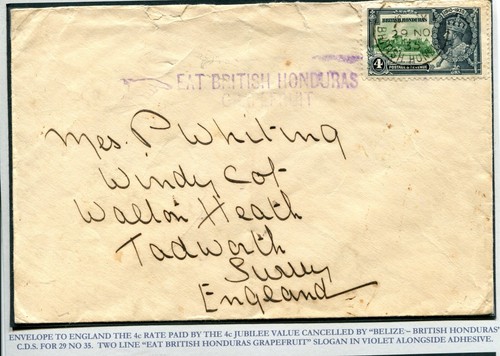 BRITISH HONDURAS
29 NO
4
POSTAGE & REVENUE
EAT BRITISH HONDURAS
GRAPEFRUIT
Mrs. P Whiting
Windy Cot
Walton Heath
Tadworth
Surrey
England
ENVELOPE TO ENGLAND THE 4c RATE PAID BY THE 4c JUBILEE VALUE CANCELLED BY "BELIZE - BRITISH HONDURAS"
C.D.S. FOR 29 NO 35. TWO LINE "EAT BRITISH HONDURAS GRAPEFRUIT" SLOGAN IN VIOLET ALONGSIDE ADHESIVE.